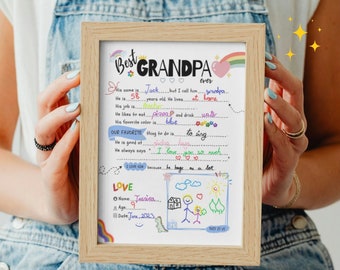 Best
GRANDPA
ever
His name is Jack, but I call him grandpa.
He is 58 years old. He lives at home
His job is
He likes to eat and drink
His favorite color is blue
OUR FAVORITE thing to do is to sing
He is good at
He always says "I love you so much
I love him because he hugs me a lot
LOVE
Name: Jessica
Age: 9
Date: June, 2023